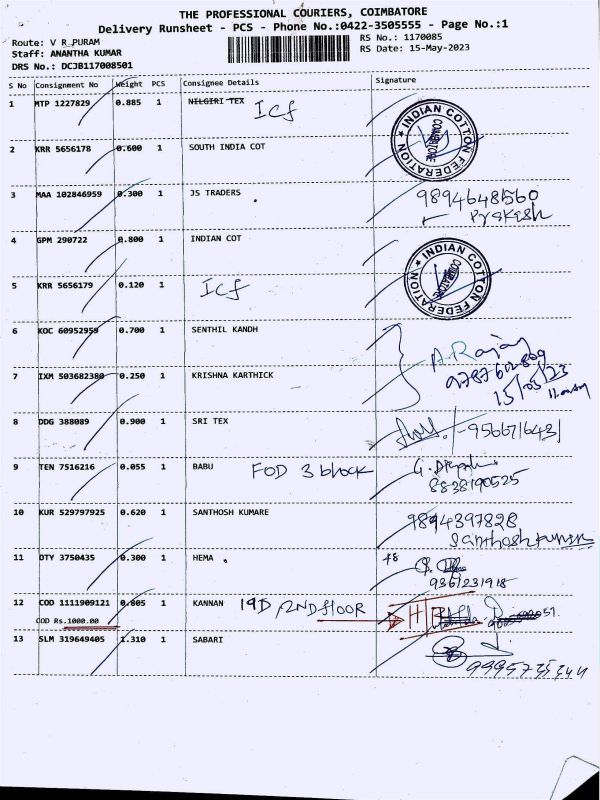 THE PROFESSIONAL COURIERS, COIMBATORE
Delivery Runsheet - PCS - Phone No.:0422-3505555 - Page No.:1
Route: V R PURAM
RS No.: 1170085
Staff: ANANTHA KUMAR
RS Date: 15-May-2023
DRS No.: DCJB117008501
S No Consignment No Weight PCS Consignee Details Signature
1 MTP 1227829 0.885 1 NILGIRI TEX Icf
INDIAN COTTON FEDERATION COIMBATORE
2 KRR 5656178 0.600 1 SOUTH INDIA COT
3 MAA 102846959 0.300 1 JS TRADERS 9894648560
Prakash
4 GPM 290722 0.800 1 INDIAN COT
INDIAN COTTON FEDERATION COIMBATORE
5 KRR 5656179 0.120 1 Icf
6 KOC 60952959 0.700 1 SENTHIL KANDH
15/05/23
7 IXM 503682380 0.250 1 KRISHNA KARTHICK
8 DDG 388089 0.900 1 SRI TEX 9566716431
9 TEN 7516216 0.055 1 BABU FOD 3 block
8838190525
10 KUR 529797925 0.620 1 SANTHOSH KUMARE 9894397828
Santhosh kumar
11 DTY 3750435 0.300 1 HEMA
9361231918
12 COD 1111909121 0.805 1 KANNAN 19D /2ND floor
COD Rs.1000.00
13 SLM 319649405 1.310 1 SABARI